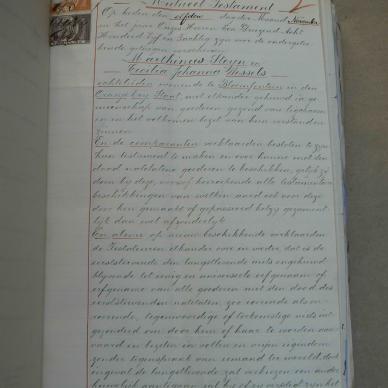 Mutueel Testament
Op heden den elfden dag der Maand November
in het jaar Onzes Heeren Een Duizend Acht
Honderd Vijf en Tachtig zijn voor de ondergete-
kende getuigen verschenen
Marthinus Steyn en
Cecilia Johanna Wessels
echtelieden wonende te Bloemfontein in den
Oranje Vrij Staat, met elkander gehuwd in ge-
meenschap van goederen gezond van lichaam
en in het volkomen bezit van hun verstand
zinnen
En de comparanten verklaarden besloten te zijn
hun testament te maken en over hunne met den
dood natelatene goederen te beschikken, gelijk zij
doen bij deze, herroepende alle testamentaire
beschikkingen van welken aard ook voor deze
door hen gemaakt of gepasseerd hetzij gezament-
lijk dan wel afzonderlijk
En alsnu op nieuw beschikkende verklaarden
de Testateuren elkander over en weder, dat is de
eerststervende den langstlevende niets uitgezonderd
tot eenig en universeele erfgenaam of
erfgename van alle goederen met den dood des
eerststervenden natelaten, zoo roerende als on-
roerende, tegenwoordige of toekomstige niets uit-
gezonderd om door hem of haar te worden aan-
vaard en bezeten in vollen en vrijen eigendom
zonder tegenspraak van iemand ter wereld, doch
ingeval de langstlevende zal verkiezen een ander
huwelijk aan te gaan zal hij of zij verplicht zijn het